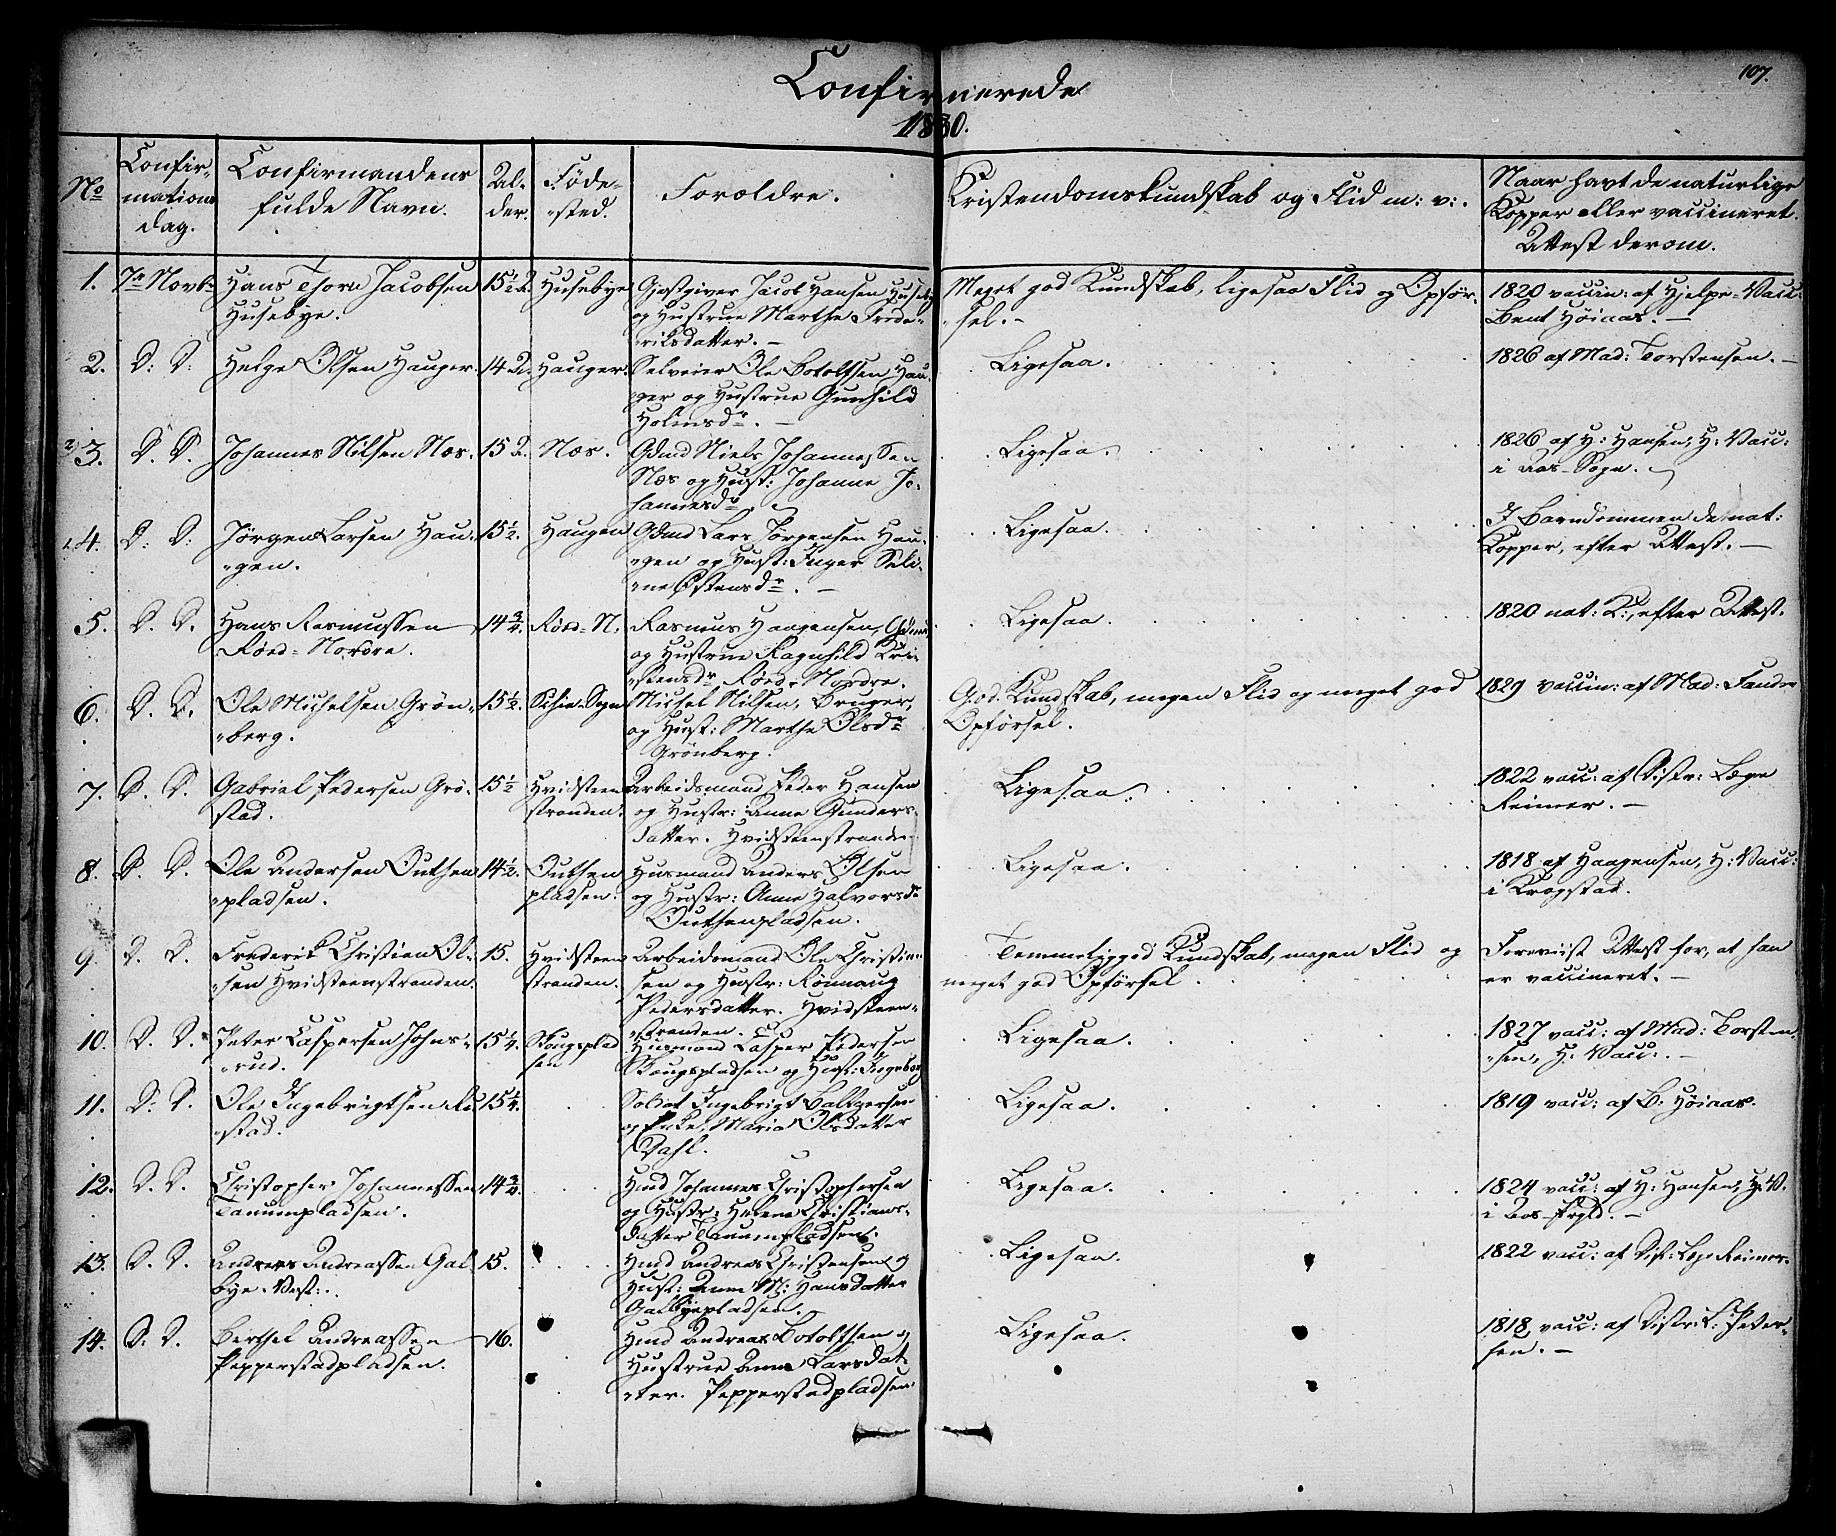 107.
Confirmerede
1830.
No
Confir-
mations
dag.
Confirmandens
fulde Navn.
Al-
der.
Føde-
sted.
Forældre.
Kristendomskundskab og Flid m: v:.
Naar havt de naturlige
Kopper eller vaccineret.
Attest derom.
1. 7de Novbr Hans Thorn Jacobsen
Husebye.
15 1/2 Husebye
Gjæstgiver Jacob Hansen Huseby
og Hustrue Marthe Frede-
riksdatter. —
Meget god Kundskab, ligesaa Flid og Opfør-
sel. —
1820 vaccin: af Hjelpe-Vacc:
Bent Høiaas. —
2. D: D: Helge Olsen Hauger. 14 Hauger.
Selveier Ole Botolfsen Hau-
ger og Hustrue Gunhild
Holmsdr. —
Ligesaa.
1826 af Mad: Torstensen. —
3. D. D. Johannes Nilsen Næs. 15 Næs.
Gdmd Niels Johannessen
Næs og Hust: Johanne Jo-
hannesdr.
Ligesaa.
1826 af H: Hansen, H: Vacc:
i Aas-Sogn.
4. D: D: Jørgen Larsen Hau-
gen.
15 1/2. Haugen
Gdmd Lars Jørgensen Hau-
gen og Hust: Inger Seli-
ne Østensdr. —
Ligesaa.
I Barndommen de nat:
Kopper, efter Attest. —
5. D. D. Hans Rasmussen
Røed-Nordre.
14 3/4. Røed-N.
Rasmus Haagensen, Gdmd
og Hustrue Ragnhild Kri-
stensdr Røed-Nordre.
Ligesaa.
1820 nat: K:, efter Attest.
6. D. D. Ole Michelsen Grøn-
berg.
15 1/2. Schie-Sogn
Michel Nilsen, Bruger,
og Hust: Marthe Olsdr
Grønberg.
God Kundskab, megen Flid og meget god
Opførsel.
1829 vaccin: af Mad: Fandre
7. D. D. Gabriel Pedersen Grø-
stad.
15 1/2 Hvidsteen
stranden.
Arbeidsmand Peder Hansen
og Hustr: Anne Gunders-
datter. Hvidsteenstranden
Ligesaa.
1822 vacc: af Distr: Læge
Reimer. —
8. D. D. Ole Andersen Outhen
pladsen.
14 1/2. Outhen
pladsen.
Husmand Anders Olsen
og Hustr: Anne Halvorsdr
Outhenpladsen.
Ligesaa.
1818 af Haagensen, H: Vacc:
i Krogstad.
9. D. D. Frederik Christian Ol-
sen Hvidsteenstranden.
15. Hvidsteen
stranden.
Arbeidsmand Ole Christian-
sen og Hustr: Rønnaug
Pedersdatter. Hvidsteen-
stranden.
Temmelig god Kundskab, megen Flid og
meget god Opførsel.
Foreviist Attest for, at han
er vaccineret. —
10. D. D. Peter Caspersen Johns-
rud.
15 1/4. Skougsplad
sen
Husmand Casper Pedersen
Skougspladsen og Hust: Ingeborg
Ligesaa.
1827 vacc: af Mad: Torsten-
sen, H: Vacc:. —
11. D: D. Ole Ingebrigtsen Ru
stad.
15 1/4.
Soldat Ingebrigt Baltzersen
og Enke, Maria Olsdatter
Dahl.
Ligesaa.
1819 vacc: af B: Høiaas.
12. D. D. Christopher Johannessen
Tanumpladsen.
14 3/4.
Hmd Johannes Christophersen
og Hustr: Helene Christians-
datter Tanumpladsen.
Ligesaa.
1824 vacc: af H: Hansen, H: V.
i Aas-Prgld. —
13. D. D. Andreas Andreassen Gal-
bye-Vest:.
15.
Hmd Andreas Christensen og
Hust: Anne M: Hansdatter
Galbyepladsen. —
Ligesaa.
1822 vacc: af Dist: Læge Reimer.
14. D. D. Berthel Andreassen
Pepperstadpladsen.
16.
Hmd Andreas Botolfsen og
Hustrue Anne Larsdat-
ter. Pepperstadpladsen.
Ligesaa.
1818 vacc: af Distr: L: Peter-
sen. —